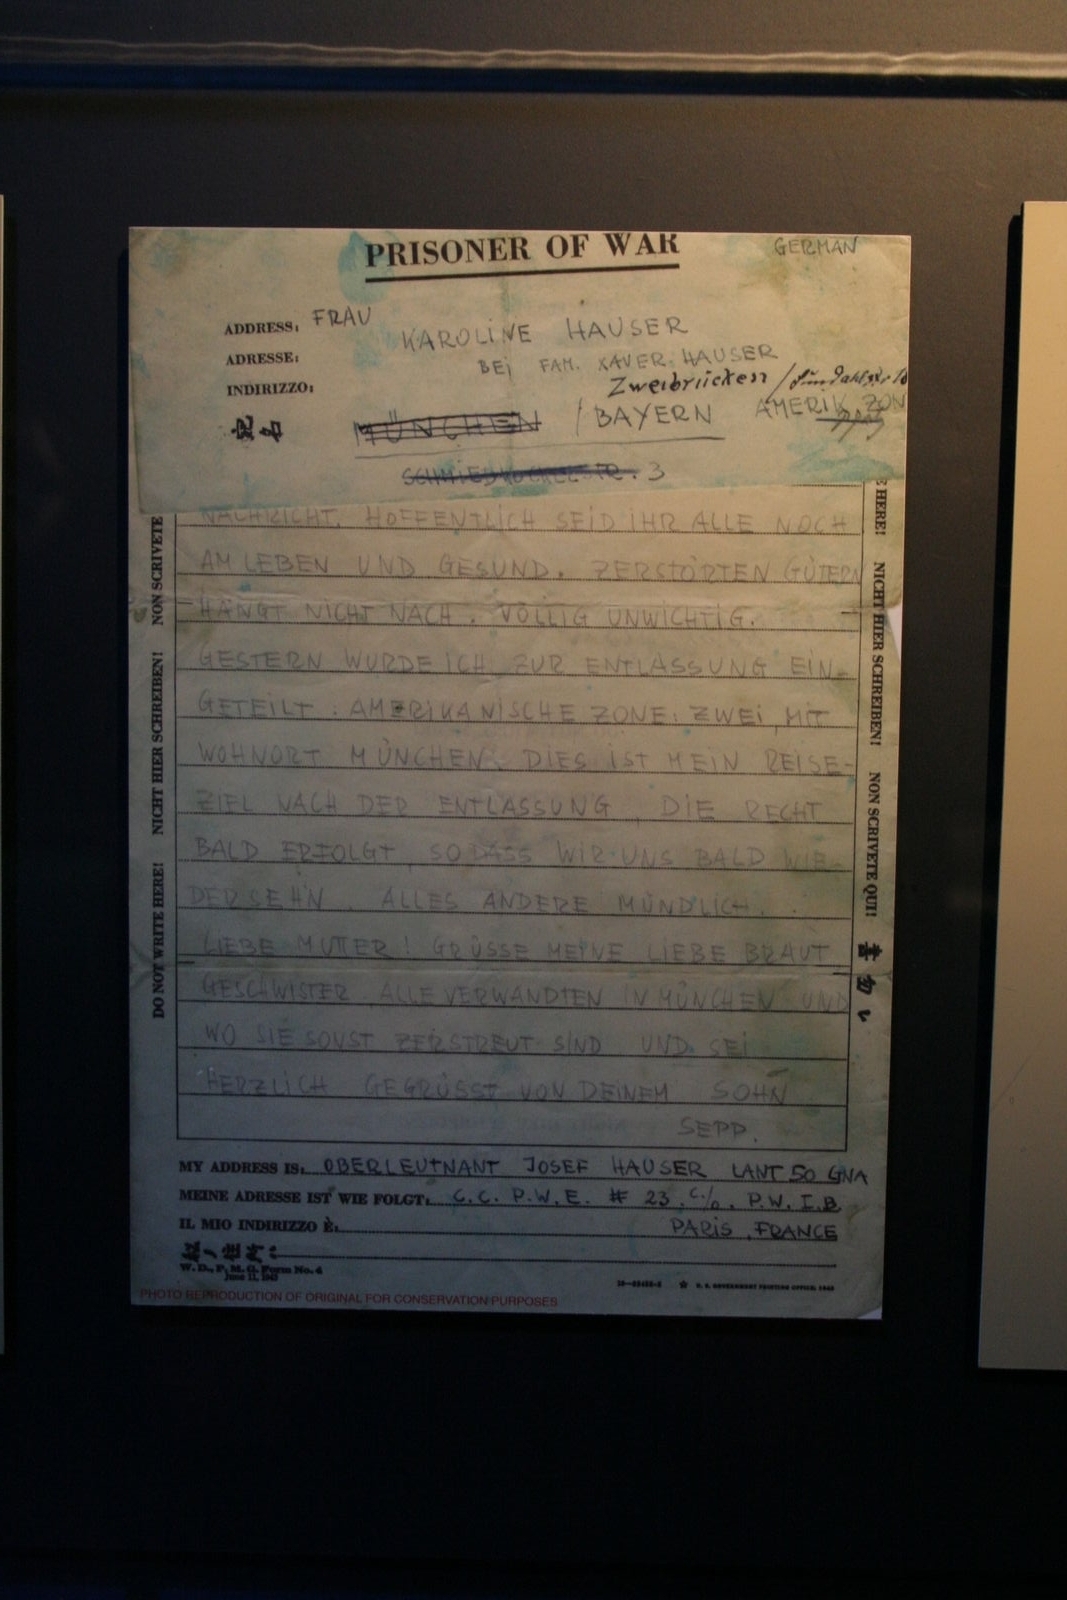 PRISONER OF WAR
GERMAN
ADDRESS: FRAU KAROLINE HAUSER
ADRESSE: BEI FAM. XAVER HAUSER
INDIRIZZO: Zweibrücken /
MÜNCHEN / BAYERN AMERIK. ZON
3
NACHRICHT. HOFFENTLICH SEID IHR ALLE NOCH
AM LEBEN UND GESUND. ZERSTÖRTEN GÜTERN
HÄNGT NICHT NACH. VÖLLIG UNWICHTIG.
GESTERN WURDE ICH ZUR ENTLASSUNG EIN-
GETEILT: AMERIKANISCHE ZONE: ZWEI, MIT
WOHNORT MÜNCHEN. DIES IST MEIN REISE-
ZIEL NACH DER ENTLASSUNG, DIE RECHT
BALD ERFOLGT, SODASS WIR UNS BALD WIE-
DERSEHN. ALLES ANDERE MÜNDLICH.
LIEBE MUTTER! GRÜSSE MEINE LIEBE BRAUT
GESCHWISTER, ALLE VERWANDTEN IN MÜNCHEN UND
WO SIE SONST ZERSTREUT SIND UND SEI
HERZLICH GEGRÜSST VON DEINEM SOHN
SEPP.
NON SCRIVETE
NICHT HIER SCHREIBEN!
DO NOT WRITE HERE!
HERE!
NICHT HIER SCHREIBEN!
NON SCRIVETE QUI!
MY ADDRESS IS: OBERLEUTNANT JOSEF HAUSER LANT 50 GNA
MEINE ADRESSE IST WIE FOLGT: C.C. P.W.E. # 23, C/o. P.W.I.B.
IL MIO INDIRIZZO È: PARIS, FRANCE
W. D., P. M. G. Form No. 4
June 11, 1943
U. S. GOVERNMENT PRINTING OFFICE: 1943
PHOTO REPRODUCTION OF ORIGINAL FOR CONSERVATION PURPOSES